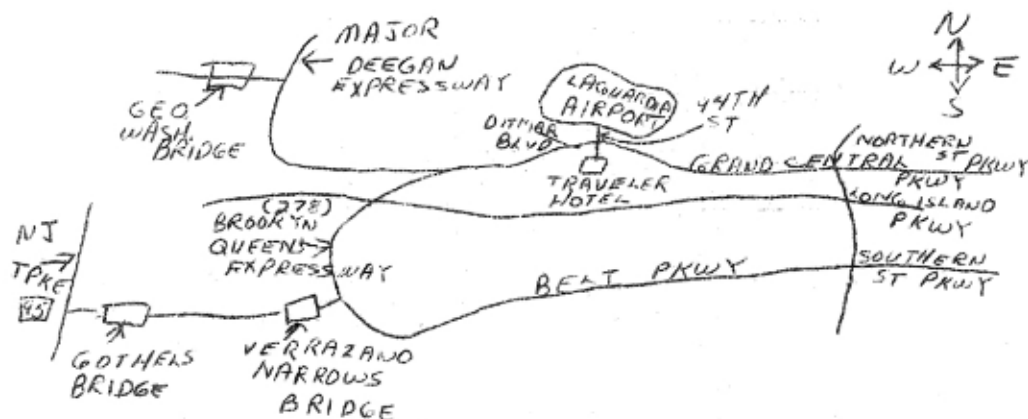 MAJOR
DEEGAN
EXPRESSWAY
GEO.
WASH.
BRIDGE
LAGUARDIA
AIRPORT
44TH
ST
DITMIBA
BLVD
TRAVELER
HOTEL
N
W
E
S
NORTHERN
ST PKWY
GRAND CENTRAL
PKWY
LONG ISLAND
PKWY
(278)
BROOKYN
QUEENS
EXPRESSWAY
BELT PKWY
SOUTHERN
ST PKWY
NJ
TPKE
95
GOTHELS
BRIDGE
VERRAZANO
NARROWS
BRIDGE